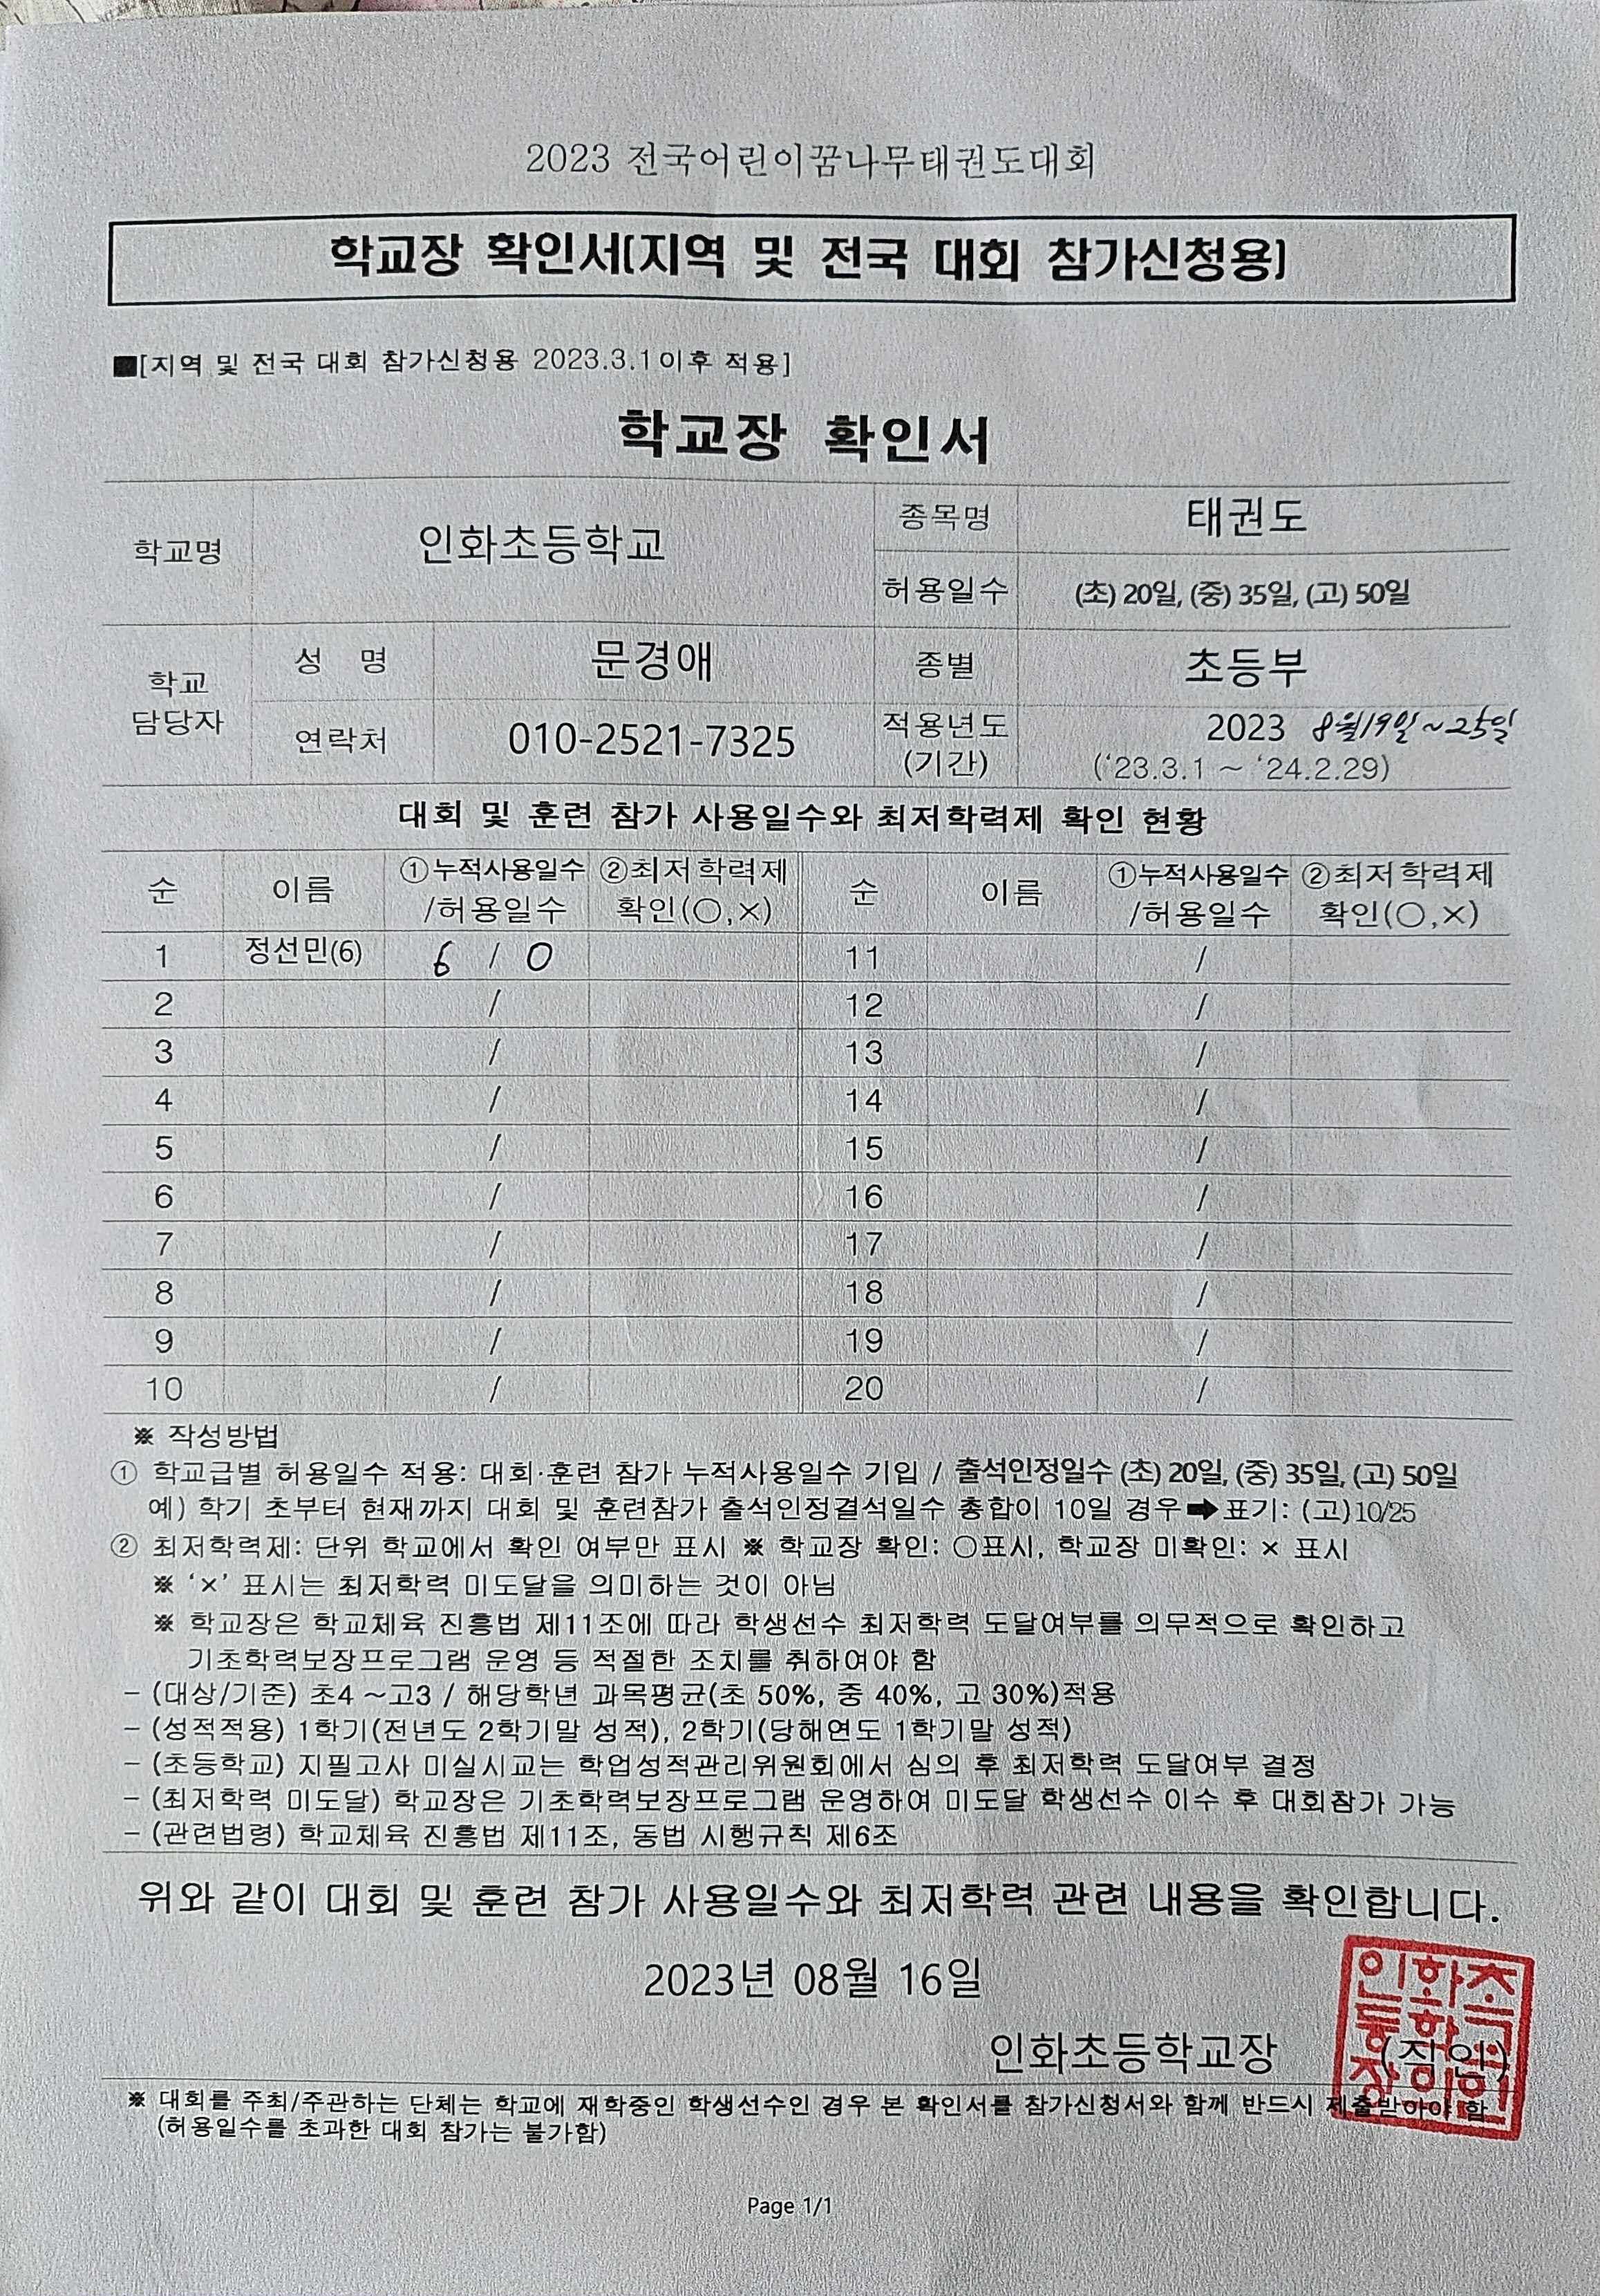 2023 전국어린이꿈나무태권도대회
학교장 확인서(지역 및 전국 대회 참가신청용)
■[지역 및 전국 대회 참가신청용 2023.3.1이후 적용]
학교장 확인서
학교명 인화초등학교 종목명 태권도
허용일수 (초) 20일, (중) 35일, (고) 50일
학교 담당자 성 명 문경애 종별 초등부
연락처 010-2521-7325 적용년도 (기간) 2023 8월19일~25일
(‘23.3.1 ~ ‘24.2.29)
대회 및 훈련 참가 사용일수와 최저학력제 확인 현황
순 이름 ①누적사용일수 ②최저학력제 순 이름 ①누적사용일수 ②최저학력제
/허용일수 확인(○,×) /허용일수 확인(○,×)
1 정선민(6) 6 / 0 11 /
2 / 12 /
3 / 13 /
4 / 14 /
5 / 15 /
6 / 16 /
7 / 17 /
8 / 18 /
9 / 19 /
10 / 20 /
※ 작성방법
① 학교급별 허용일수 적용: 대회·훈련 참가 누적사용일수 기입 / 출석인정일수 (초) 20일, (중) 35일, (고) 50일
예) 학기 초부터 현재까지 대회 및 훈련참가 출석인정결석일수 총합이 10일 경우➡표기: (고)10/25
② 최저학력제: 단위 학교에서 확인 여부만 표시 ※ 학교장 확인: ○표시, 학교장 미확인: × 표시
※ ‘×’ 표시는 최저학력 미도달을 의미하는 것이 아님
※ 학교장은 학교체육 진흥법 제11조에 따라 학생선수 최저학력 도달여부를 의무적으로 확인하고
기초학력보장프로그램 운영 등 적절한 조치를 취하여야 함
- (대상/기준) 초4 ~고3 / 해당학년 과목평균(초 50%, 중 40%, 고 30%)적용
- (성적적용) 1학기(전년도 2학기말 성적), 2학기(당해연도 1학기말 성적)
- (초등학교) 지필고사 미실시교는 학업성적관리위원회에서 심의 후 최저학력 도달여부 결정
- (최저학력 미도달) 학교장은 기초학력보장프로그램 운영하여 미도달 학생선수 이수 후 대회참가 가능
- (관련법령) 학교체육 진흥법 제11조, 동법 시행규칙 제6조
위와 같이 대회 및 훈련 참가 사용일수와 최저학력 관련 내용을 확인합니다.
2023년 08월 16일
인화초등학교장 (직인)
인화초
등학교
장의인
※ 대회를 주최/주관하는 단체는 학교에 재학중인 학생선수인 경우 본 확인서를 참가신청서와 함께 반드시 제출받아야 함
(허용일수를 초과한 대회 참가는 불가함)
Page 1/1